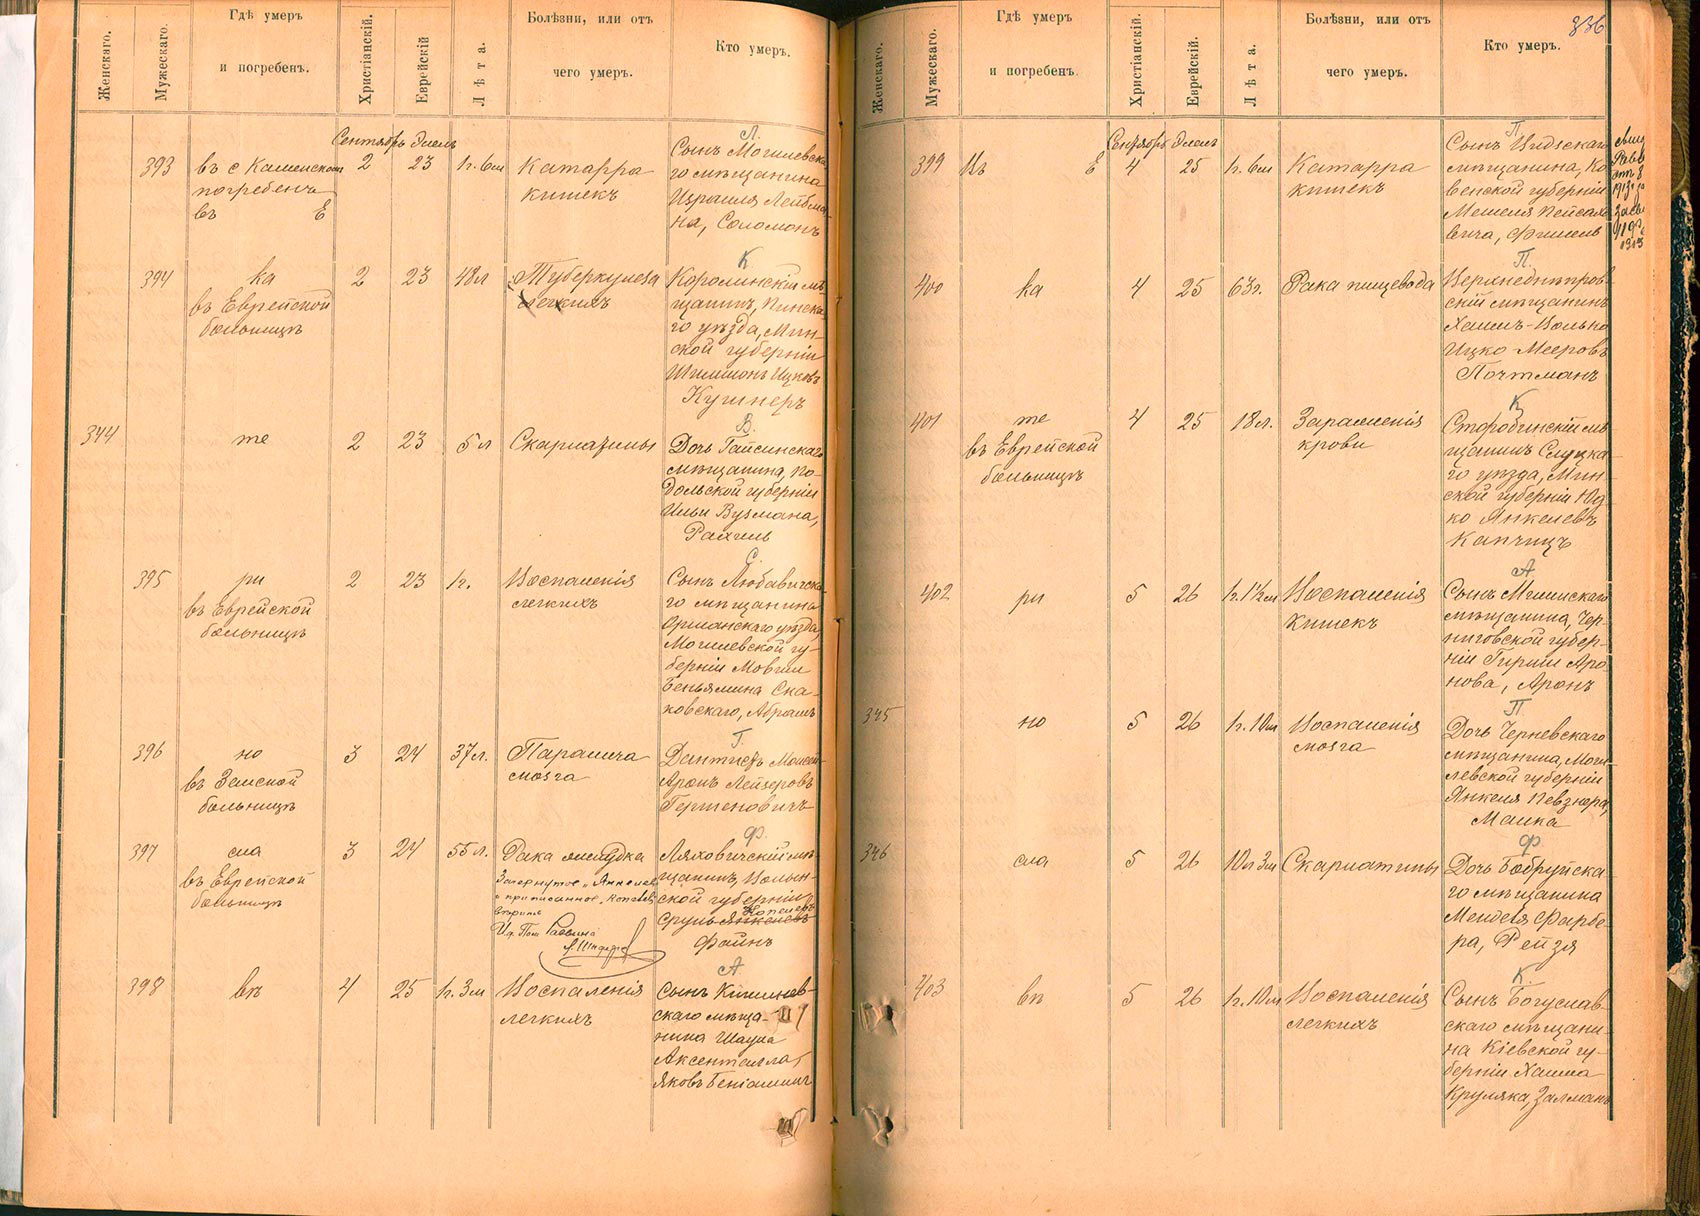 Женскаго.
Мужескаго.
Гдѣ умеръ
и погребенъ.
Христіанскій.
Еврейскій
Лѣта.
Болѣзни, или отъ
чего умеръ.
Кто умеръ.
Сентябрь Элелъ
393
въ с Каменскомъ
погребенъ
въ Е
2
23
1г. 6м
Катарра
кишекъ
Л.
Сынъ Могилевска
го мѣщанина
Израиля Лейбма-
на, Соломонъ
394
ка
въ Еврейской
больницѣ
2
23
48л
Туберкулеза
легкихъ
К
Королинскій мѣ
щанинъ, Пинска
го уѣзда, Мин-
ской губерніи
Шлиіонъ Ицковъ
Кушнеръ
344
те
2
23
5л
Скарлатины
В.
Дочь Гайсинскаго
мѣщанина По-
дольской губерніи
Ильи Вузмана,
Рахиль
395
ри
въ Еврейской
больницѣ
2
23
1г.
Воспаленія
легкихъ
С.
Сынъ Любавичска-
го мѣщанина
Оршанскаго уѣзда,
Могилевской гу-
берніи Мовши
Беньямина Ска-
ковскаго, Абрамъ
396
но
въ Земской
больницѣ
3
24
37л.
Паралича
мозга
Г.
Дантистъ Мовсей-
Аронъ Лейзеровъ
Герценовичъ
397
сла
въ Еврейской
больницѣ
3
24
55л.
Рака желудка
Зачеркнутое „Янкелевъ
и приписанное „Копелевъ
вѣрить
И.д. Пом. Раввина
Ф.
Ляховичскій мѣ-
щанинъ, Волын-
ской губерніи
Копелевъ
Сруль Янкелевъ
Файнъ
398
въ
4
25
1г. 3м
Воспаленія
легкихъ
А.
Сынъ Кишинев-
скаго мѣща-
нина Шаула
Аксентелла,
Яковъ Беніаминъ
336
Женскаго.
Мужескаго.
Гдѣ умеръ
и погребенъ.
Христіанскій.
Еврейскій.
Лѣта.
Болѣзни, или отъ
чего умеръ.
Кто умеръ.
Сентябрь Элелъ
399
Въ Е
4
25
1г. 6м
Катарра
кишекъ
П.
Сынъ Видзскаго
мѣщанина, Ко
венской губерніи
Мешеля Пейсахо
вича, Фишель
400
ка
4
25
63г.
Рака пищевода
П.
Верхнеднѣпров-
скій мѣщанинъ
Хаимъ-Волько
Ицко-Мееровъ
Почтманъ
401
те
въ Еврейской
больницѣ
4
25
18л.
Зараженія
крови
К
Старобинскій мѣ
щанинъ Слуцка-
го уѣзда, Мин-
ской губерніи Юд
ко Янкелевъ
Капчицъ
402
ри
5
26
1г. 1½м
Воспаленія
Кишекъ
А.
Сынъ Мглинскаго
мѣщанина, Чер-
ниговской губер-
ніи Гирши Аро-
нова, Аронъ
345
но
5
26
1г. 10м
Воспаленія
мозга
П
Дочь Черневскаго
мѣщанина, Моги
левской губерніи
Янкеля Певзнера,
Малка
346
сла
5
26
10л 3м
Скарлатины
Ф
Дочь Бобруйска-
го мѣщанина
Менделя Фарбе-
ра, Рейзя
403
въ
5
26
1г. 10м
Воспаленія
легкихъ
К.
Сынъ Богуслав-
скаго мѣщани-
на Кіевской гу-
берніи Хаима
Круляка, Залманъ